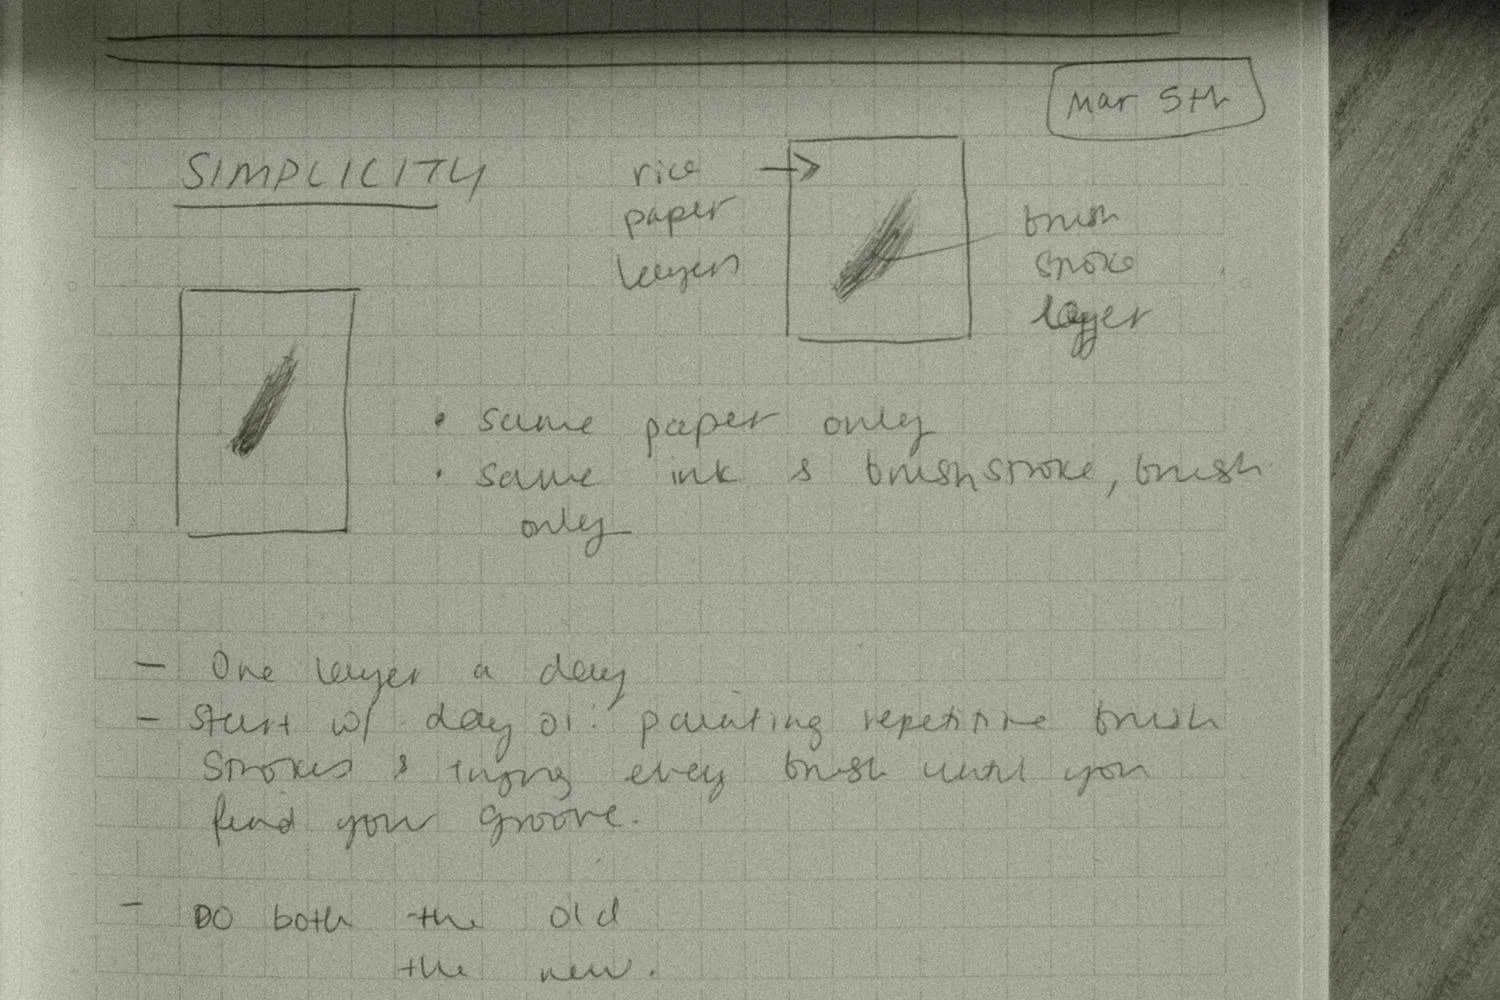 Mar 5th
SIMPLICITY
rice
paper
layers
brush
stroke
layer
• same paper only
• same ink & brushstroke, brush
only
– One layer a day
– Start w/ day 01: painting repetitive brush
strokes & trying every brush until you
find your groove.
– DO both the old
the new.